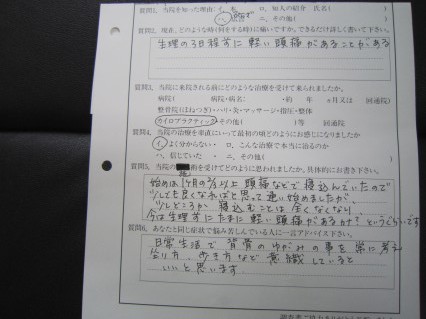 質問1. 当院を知った理由 イ. 本 ロ. 知人の紹介 氏名( )
ハ. ニ. その他( )
質問2. 現在、どのような時(何をする時)に痛いですか。できるだけ詳しく書いて下さい。
生理の3日程前に軽い頭痛があることがある
質問3. 当院に来院される前にどのような治療を受けて来られましたか。
病院( 病院・病名: ・約 年 ヵ月又は 回通院)
整骨院(ほねつぎ)・ハリ・灸・マッサージ・指圧・整体
カイロプラクティック その他( ) 等 回通院
質問4. 当院の治療を率直にいって最初の頃どのようにお感じになりましたか
イ. よく分からない・ ロ. こんな治療で本当に治るのか
ハ. 信じていた ・ ニ. その他( )
質問5. 当院の 術を受けてどのように思われましたか。具体的にお書き下さい。
始めは1ヶ月の 以上 頭痛などで寝込んでいたので
少しでも良くなればと思って通い始めましたが、
少しどころか 寝込むことは全くなくなり、
今は生理前にたまに軽い頭痛があるかナ?というぐらいです
質問6. あなたと同じ症状で悩み苦しんでいる人に一言アドバイス下さい。
日常生活で背骨のゆがみの事を常に考え
座り方、歩き方など意識していると
いいと思います